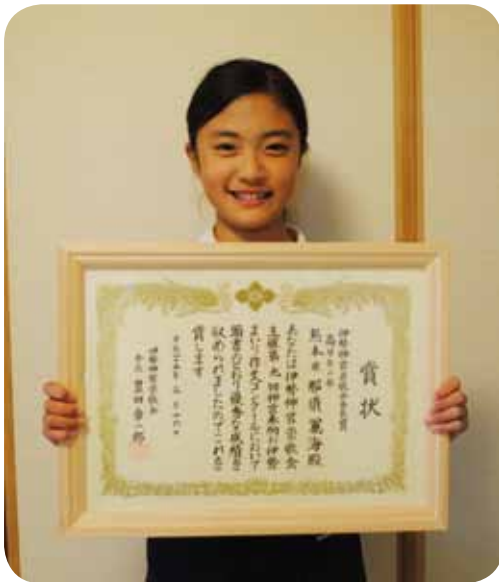 賞状
伊勢神宮崇敬会会長賞
熊本県 那須 萬海殿
あなたは伊勢神宮崇敬会
主催第九回神宮奉納お伊勢
まいり作文コンクールにおいて
頭書のとおり優秀な成績を
収められましたのでこれを
賞します
伊勢神宮崇敬会
会長 豊田章一郎